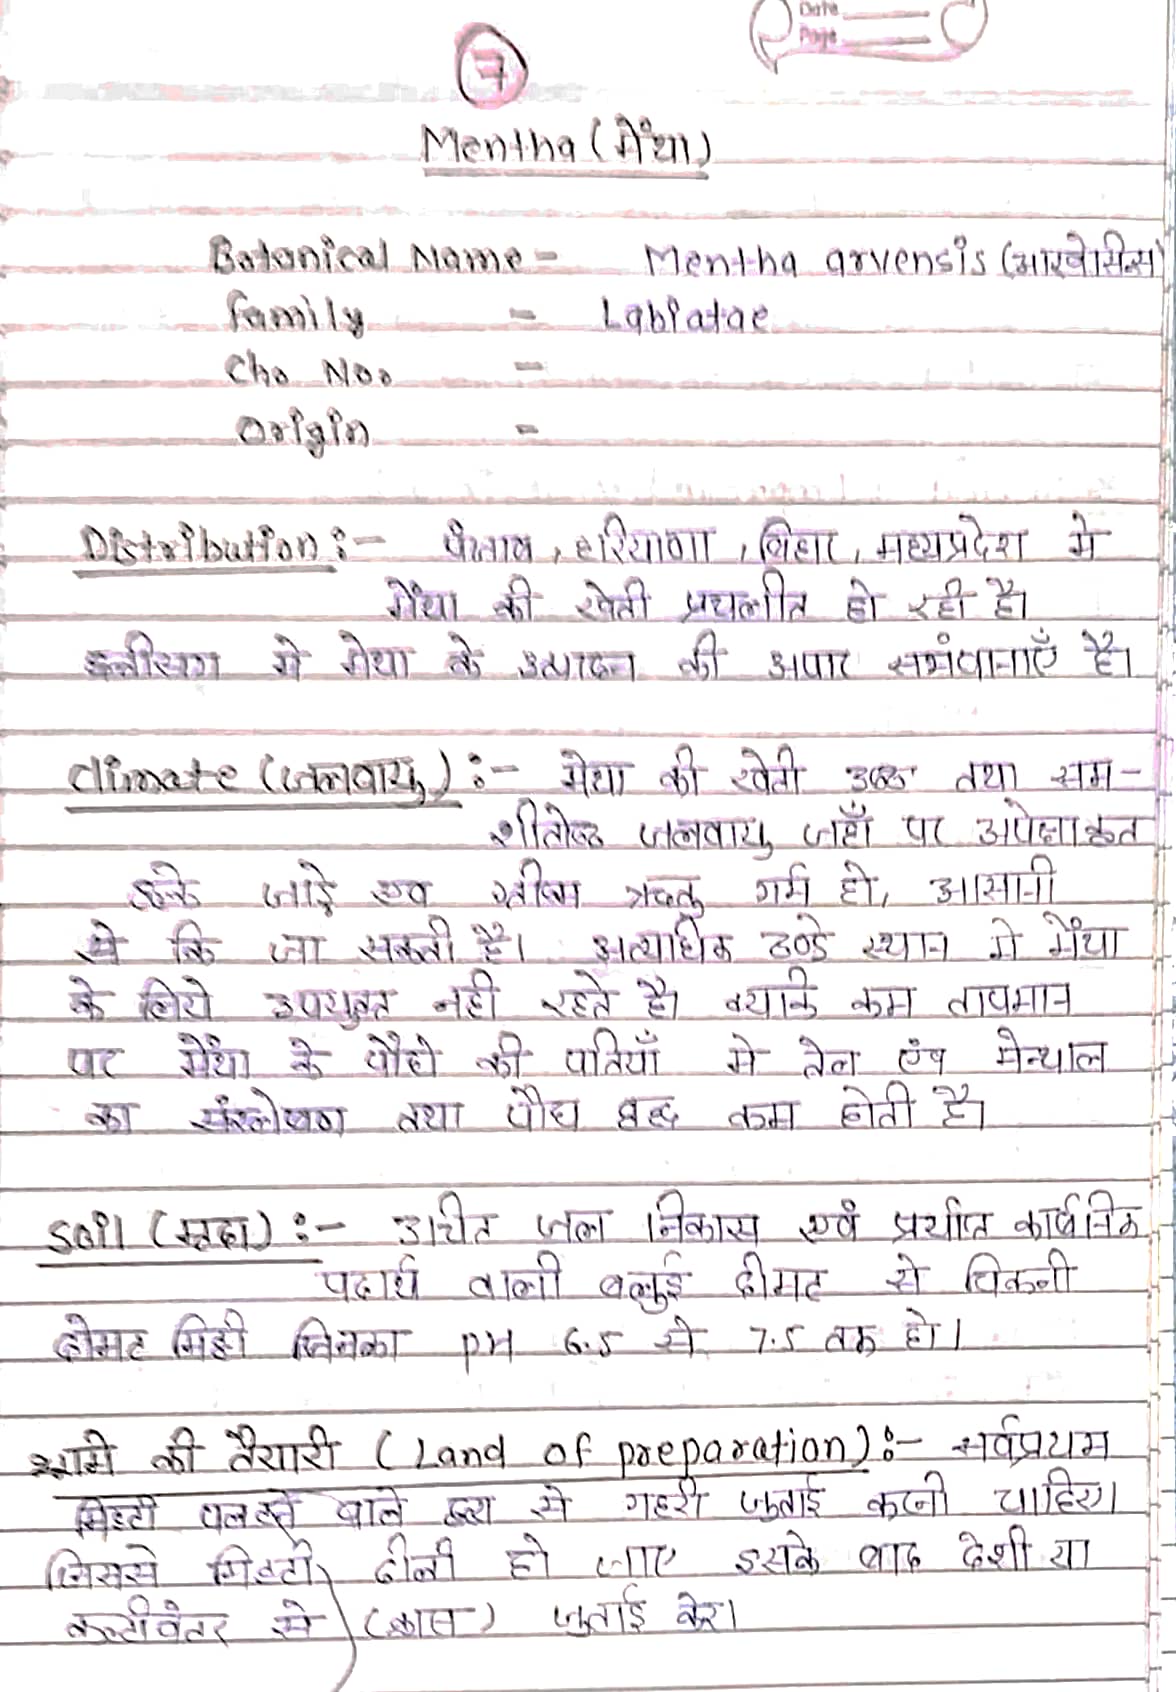 Date
Page
7
Mentha (मेंथा)
Botanical Name - Mentha arvensis (आरवेसिन्स)
family - Labiatae
Cho No. -
Origin -
Distribution :- पंजाब, हरियाणा, बिहार, मध्यप्रदेश मे
मेंथा की खेती प्रचलीत हो रही है।
छत्तीसगण मे मेथा के उत्पादन की अपार सभंवानाएँ है।
climate (जलवायु) :- मेथा की खेती उष्ण तथा सम-
शीतोष्ण जलवायु जहाँ पर अपेक्षाकृत
हल्के जाड़े एव ग्रीष्म ऋतु गर्म हो, आसानी
से कि जा सकती है। अत्याधिक ठण्डे स्थान मे मेंथा
के लिये उपयुक्त नही रहते है। क्योंकि कम तापमान
पर मेंथा के पौधो की पतियाँ मे तेल एंव मेन्थाल
का संश्लेषण तथा पौध वृद्धि कम होती है।
Soil (मृदा) :- उचित जल निकास एवं प्रर्याप्त कार्बनिक
पदार्थ वाली बलुई दोमट से चिकनी
दोमट मिट्टी जिनका pH 6.5 से 7.5 तक हो।
भूमि की तैयारी (Land of preparation) :- सर्वप्रथम
मिट्टी पलटने वाले हल से गहरी जुताई करनी चाहिए।
जिससे मिट्टी ढीली हो जाए इसके बाद देशी या
कल्टीवेटर से (क्रास) जुताई करे।